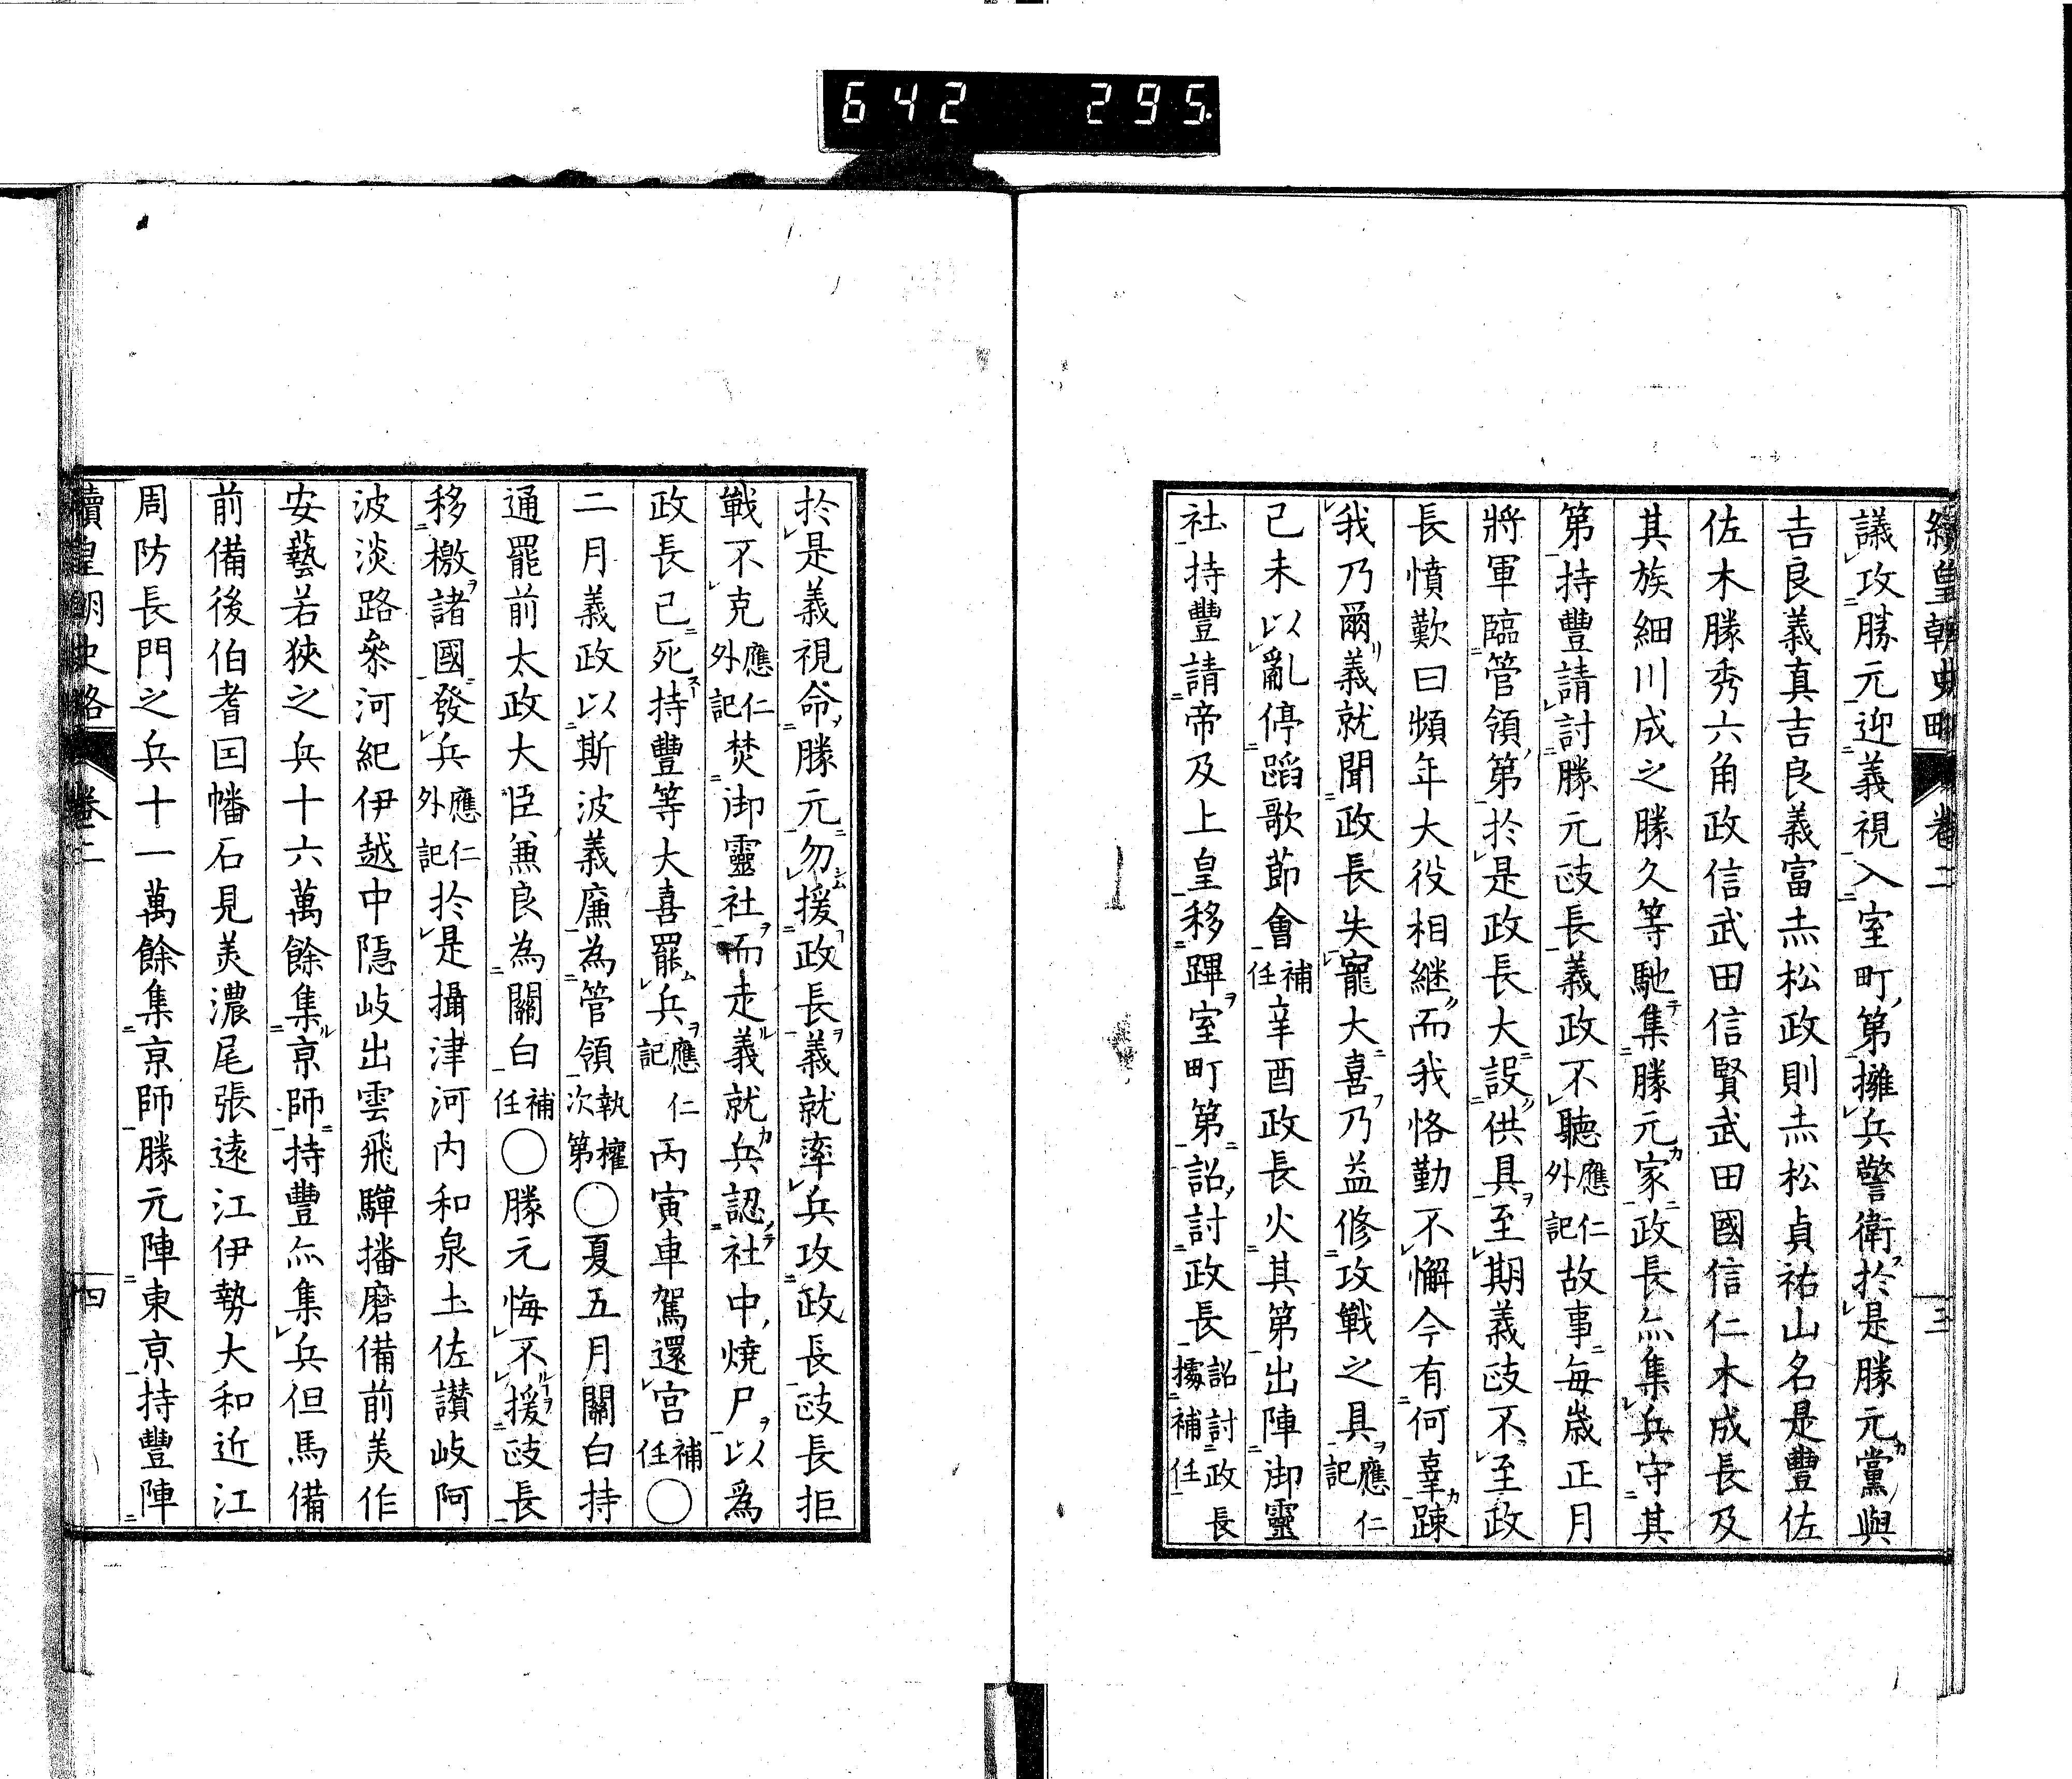 642 295.
續皇朝史略 卷二 三
議攻勝元迎義視入室町第擁兵警衛於是勝元黨與
吉良義真吉良義富赤松政則赤松貞祐山名是豐佐
佐木勝秀六角政信武田信賢武田國信仁木成長及
其族細川成之勝久等馳集勝元家政長亦集兵守其
第持豐請討勝元政長義政不聽應仁外記故事每歲正月
將軍臨管領第於是政長大設供具至期義政不至政
長憤歎曰頻年大役相継而我恪勤不懈今有何辜踈
我乃爾義就聞政長失寵大喜乃益修攻戰之具應仁記
已未以亂停蹈歌節會補任辛酉政長火其第出陣御靈
社持豐請帝及上皇移蹕室町第詔討政長詔討政長據補任
於是義視命勝元勿援政長義就率兵攻政長政長拒
戰不克應仁外記焚御靈社而走義就兵認社中燒尸以爲
政長已死持豐等大喜罷兵應仁記丙寅車駕還宮補任〇
二月義政以斯波義廉為管領執權次第〇夏五月關白持
通罷前太政大臣兼良為關白補任〇勝元悔不援政長
移檄諸國發兵應仁外記於是攝津河内和泉土佐讃岐阿
波淡路參河紀伊越中隱岐出雲飛驒播磨備前美作
安藝若狹之兵十六萬餘集京師持豐亦集兵但馬備
前備後伯耆因幡石見美濃尾張遠江伊勢大和近江
周防長門之兵十一萬餘集京師勝元陣東京持豐陣
續皇朝史略 卷二 四